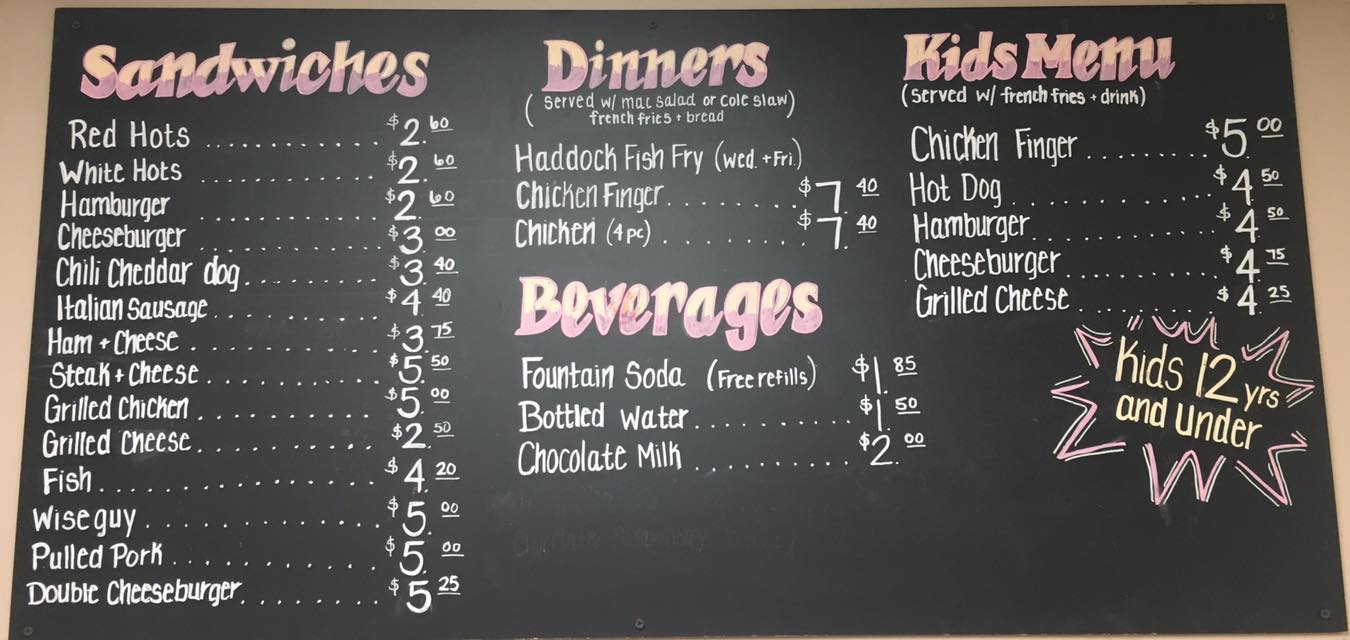 Sandwiches
Red Hots .............. $2.60
White Hots .............. $2.60
Hamburger .............. $2.60
Cheeseburger .............. $3.00
Chili Cheddar dog .............. $3.40
Italian Sausage .............. $4.40
Ham + Cheese .............. $3.75
Steak + Cheese .............. $5.50
Grilled Chicken .............. $5.00
Grilled Cheese .............. $2.50
Fish .............. $4.20
Wise guy .............. $5.00
Pulled Pork .............. $5.00
Double Cheeseburger .............. $5.25
Dinners
(Served w/ mac salad or Cole slaw)
french fries + bread
Haddock Fish Fry (Wed. + Fri.)
Chicken Finger .......... $7.40
Chicken (4pc) .......... $7.40
Beverages
Fountain Soda (Free refills) $1.85
Bottled Water .......... $1.50
Chocolate Milk .......... $2.00
Kids Menu
(Served w/ french fries + drink)
Chicken Finger ........ $5.00
Hot Dog .............. $4.50
Hamburger ............ $4.50
Cheeseburger .......... $4.75
Grilled Cheese .......... $4.25
Kids 12 yrs
and under